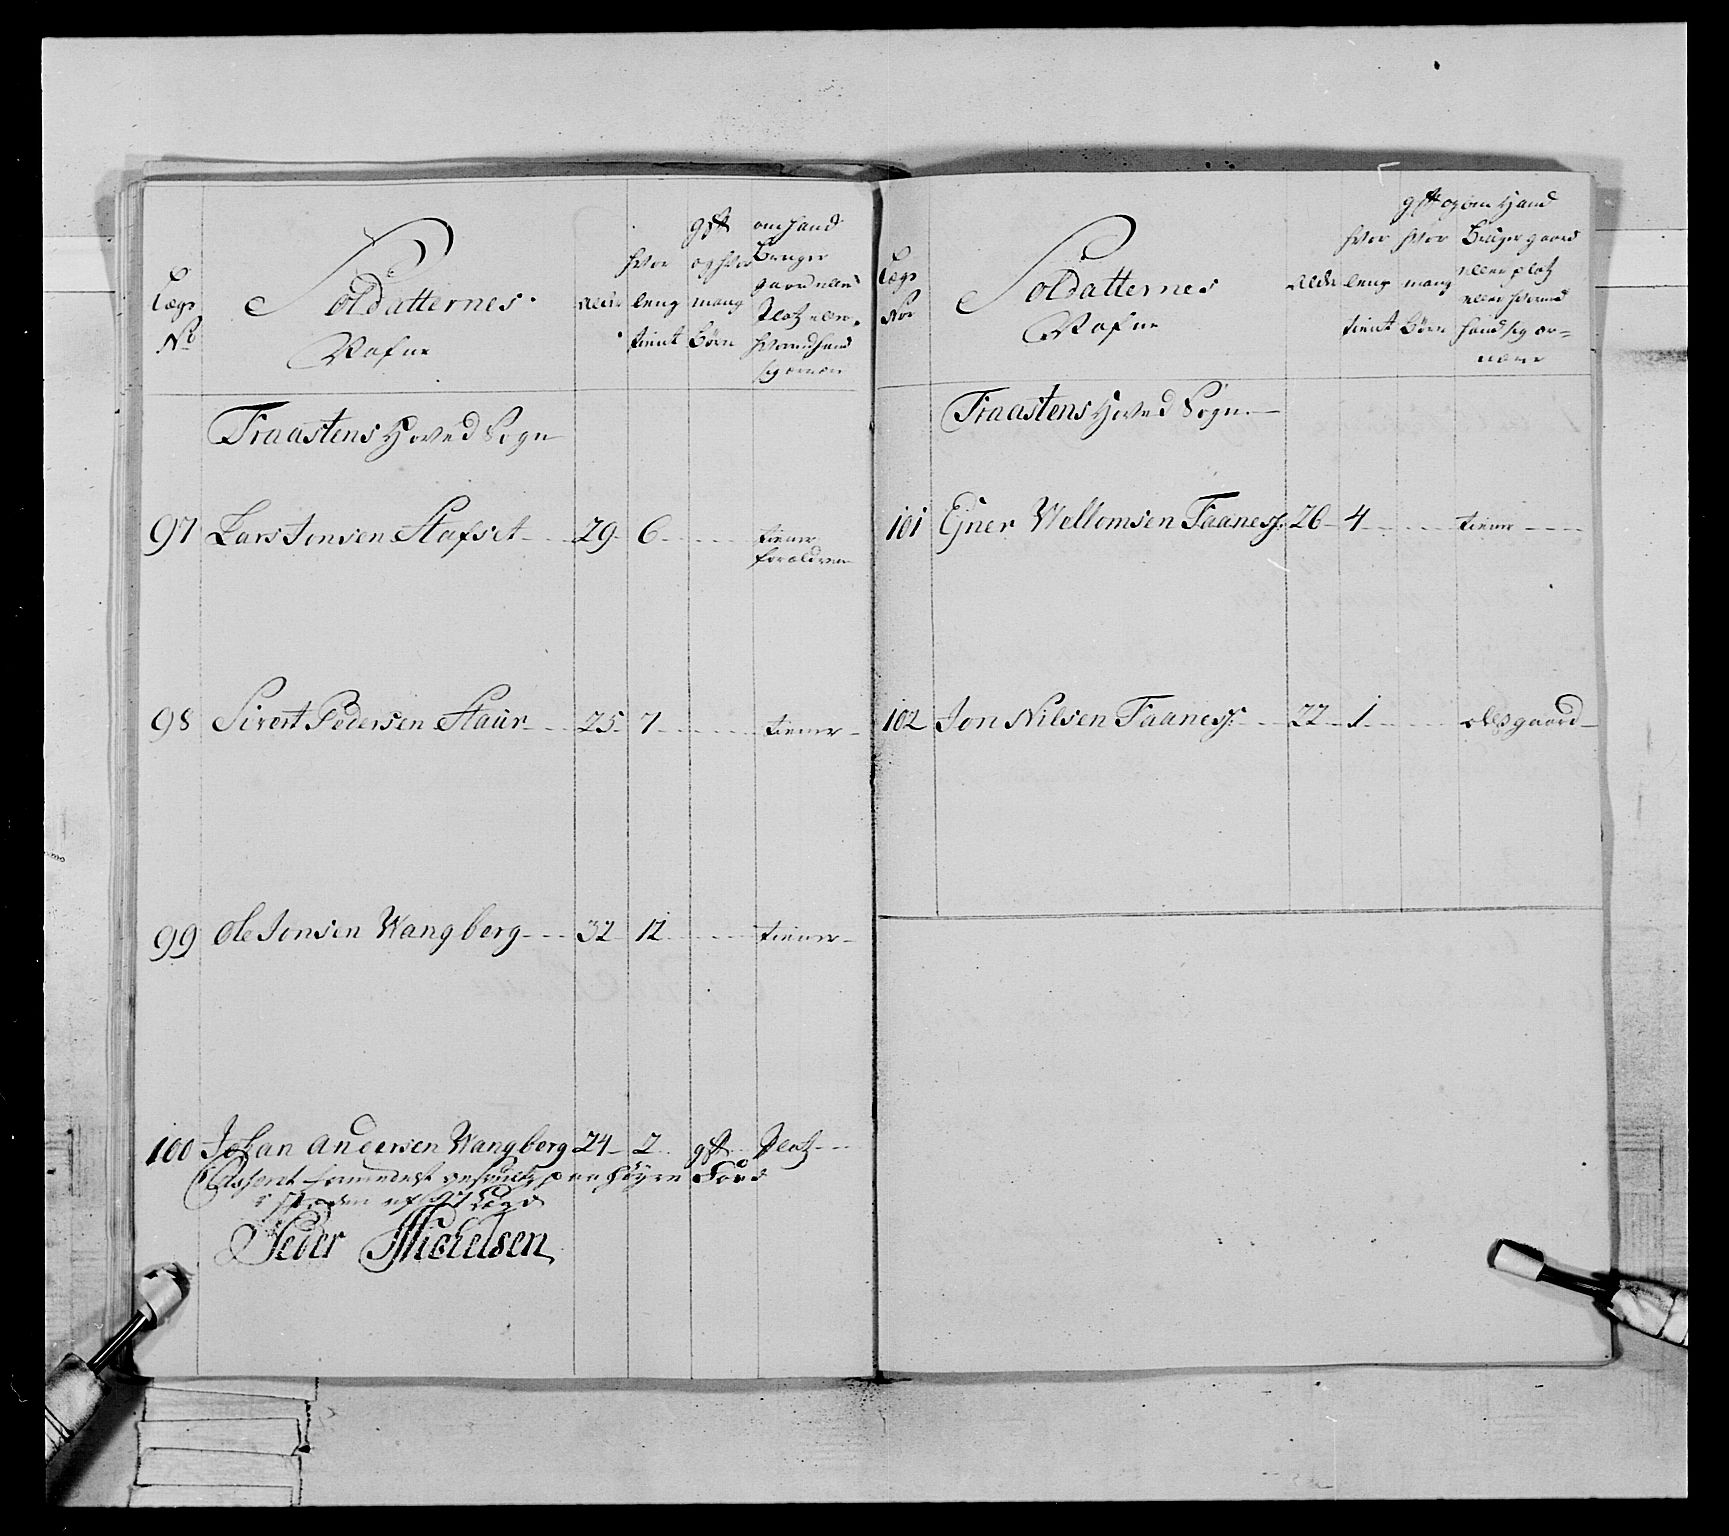 Lægs No
Soldatternes Nafne
Alder
hvor leng tient
gift og hvor mang Børn
om hand Bruger gaard eller Platz eller hvormed hand sig ernær
Fraastens Hoved Sogn
97 Lars Jonsen Stafset 29 6 tiener forældren
98 Sivert Pedersen Staur 25 7 tiener
99 Ole Jonsen Wangberg 32 12 tiener
100 Johan Andersen Wangberg 24 2 gift Platz
af 97 Lægd
Peder Michelsen
Lægs Nor
Soldatternes Nafne
Alder
hvor leng tient
gift og hvor mang Børn
om Hand Bruger gaard eller platz eller hvormed hand sig ernære
Fraastens Hoved Sogn
101 Ejner Wellomsen Faaness 26 4 tiener
102 Jon Nilsen Faaness 22 1 gaard